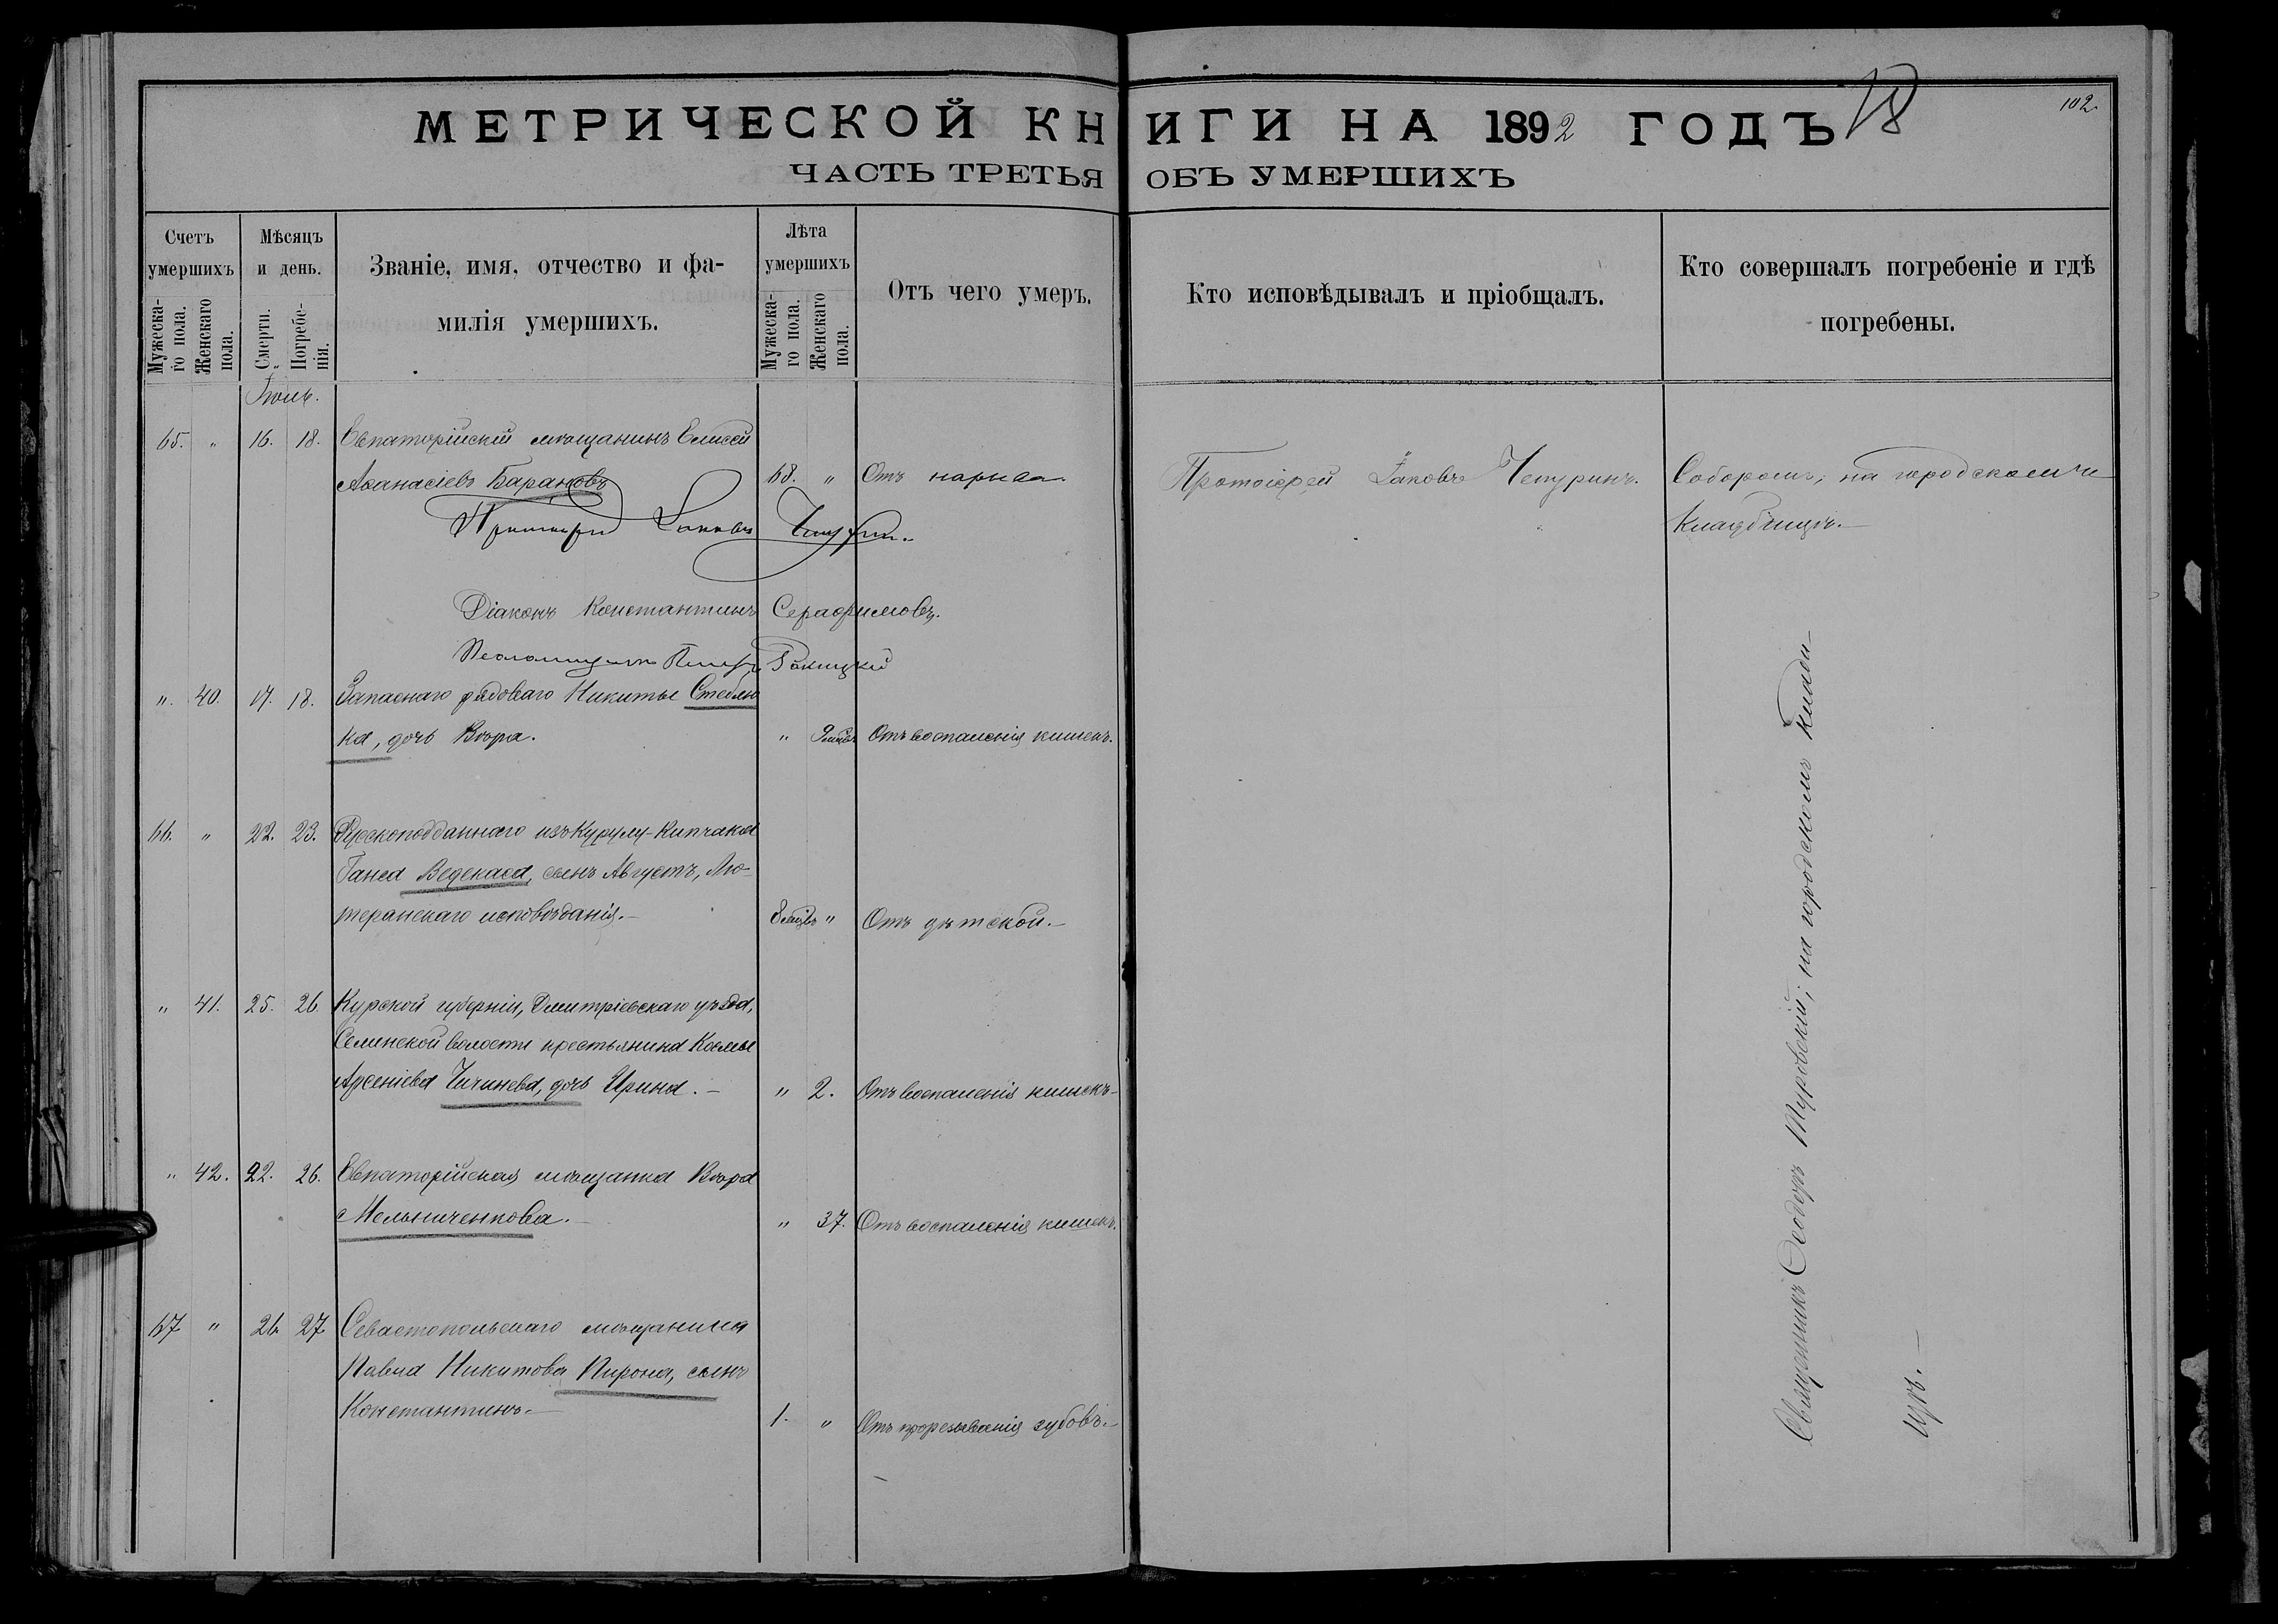 МЕТРИЧЕСКОЙ КНИГИ НА 1892 ГОДЪ
102.
ЧАСТЬ ТРЕТЬЯ ОБЪ УМЕРШИХЪ
Счетъ умершихъ
Мужеска-го пола.
Женскаго пола.
Мѣсяцъ и день.
Смерти.
Погребе-нія.
Званіе, имя, отчество и фа-
милія умершихъ.
Лѣта умершихъ
Мужеска-го пола.
Женскаго пола.
Отъ чего умеръ.
Кто исповѣдывалъ и пріобщалъ.
Кто совершалъ погребеніе и гдѣ
погребены.
65. " 16. 18. Евпаторійскій мѣщанинъ Елисей
Аѳанасіевъ Барановъ 68. " Отъ нарыва Протоіерей Іаковъ Чепуринъ. Соборомъ, на городскомъ
кладбищѣ.
Протоіерей Іаковъ Чепуринъ.
Діаконъ Константинъ Серафимовъ.
Псаломщикъ Петръ
". 40. 17. 18. Запаснаго рядоваго Никиты Стеблю
ка, дочь Вѣра. " Отъ воспаленія кишекъ.
66. " 22. 23. Русскоподданнаго изъ Курулу-Кипчака
Ганса Ведекаса, сынъ Августъ, Лю-
теранскаго исповѣданія. " Отъ дѣтской.
" 41. 25. 26. Курской губерніи, Дмитріевскаго уѣзда,
Селинской волости крестьянина Космы
Арсеніева Чичинева, дочь Ирина. " 2. Отъ воспаленія кишекъ
" 42. 22. 26. Евпаторійская мѣщанка Вѣра
Мельниченкова. " 37. Отъ воспаленія кишекъ.
67 " 26 27 Севастопольскаго мѣщанина
Павла Никитова Пирона, сынъ
Константинъ. 1. " Отъ прорезыванія зубовъ.
Священникъ Ѳеодоръ Туровскій; на городскомъ кладби-
щѣ.